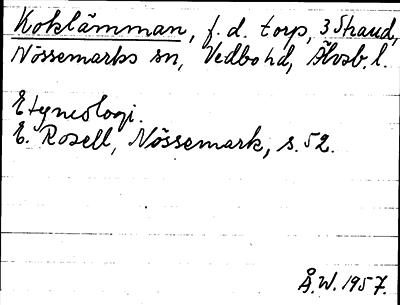 Koklämman, f. d. torp, 3 Strand,
Nössemarks sn, Vedbo hd, Älvsb. l.
Etymologi.
E. Rosell, Nössemark, s. 52.
Å.W. 1957.